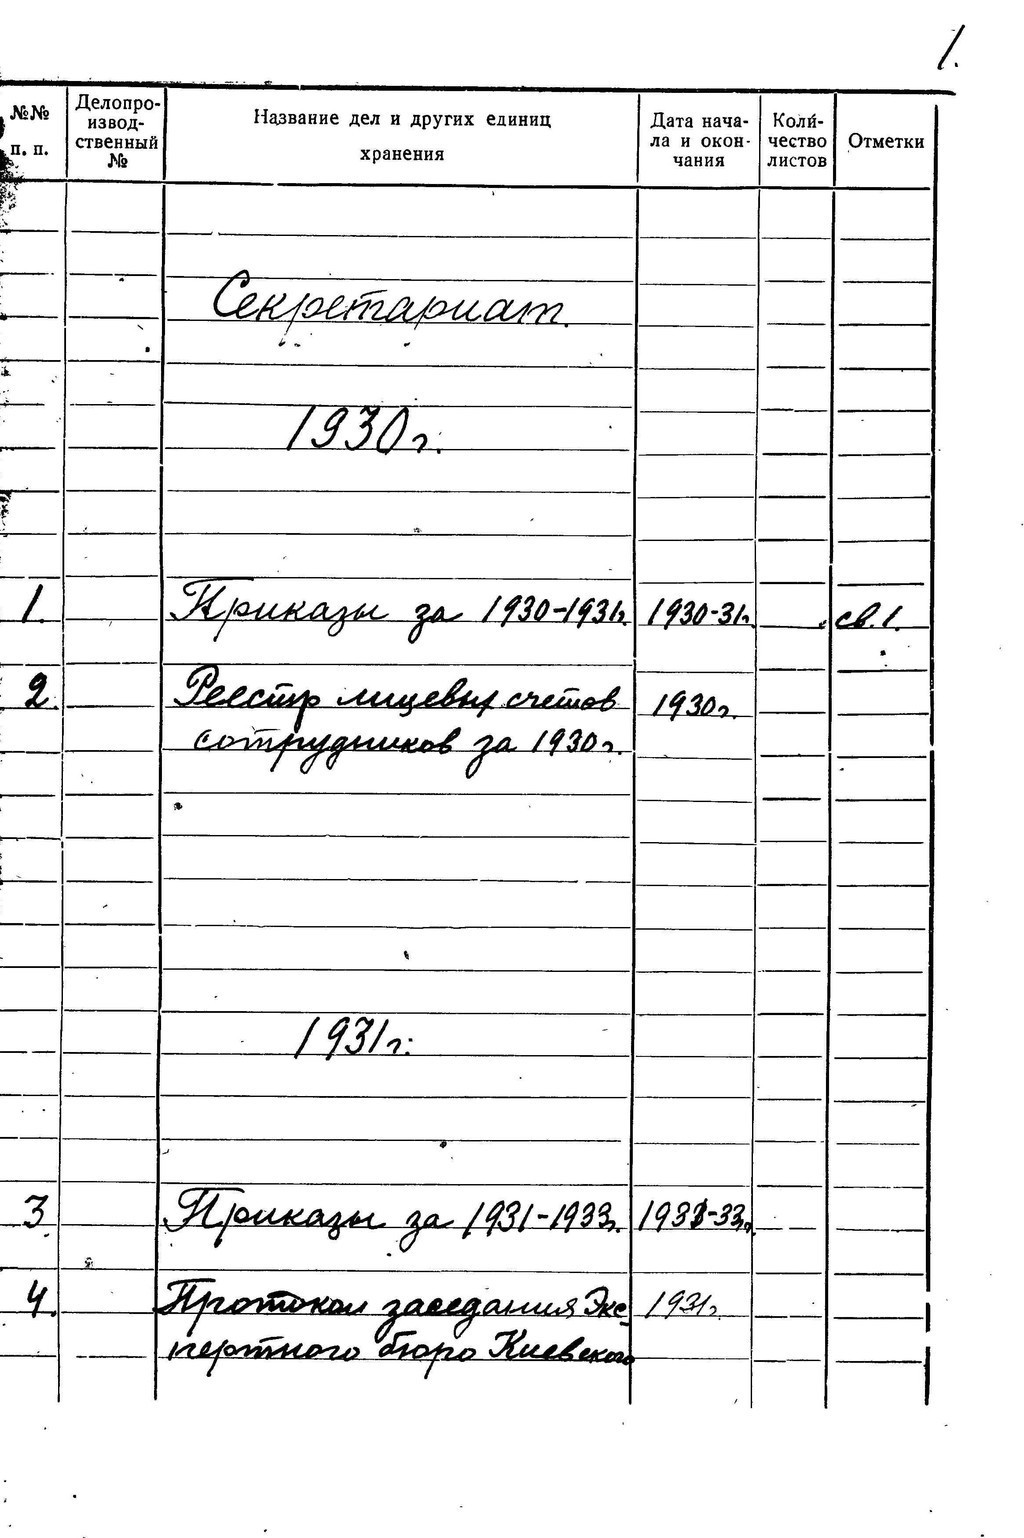 1.
№№ п. п. Делопро-извод-ственный № Название дел и других единиц хранения Дата нача-ла и окон-чания Коли-чество листов Отметки
Секретариат.
1930г.
1. Приказы за 1930-1931г. 1930-31г. св.1.
2. Реестр лицевых счетов 1930г.
сотрудников за 1930г.
1931г.
3 Приказы за 1931-1933г. 1931-33г.
4. Протокол заседания Экс- 1931г.
пертного бюро Киевского